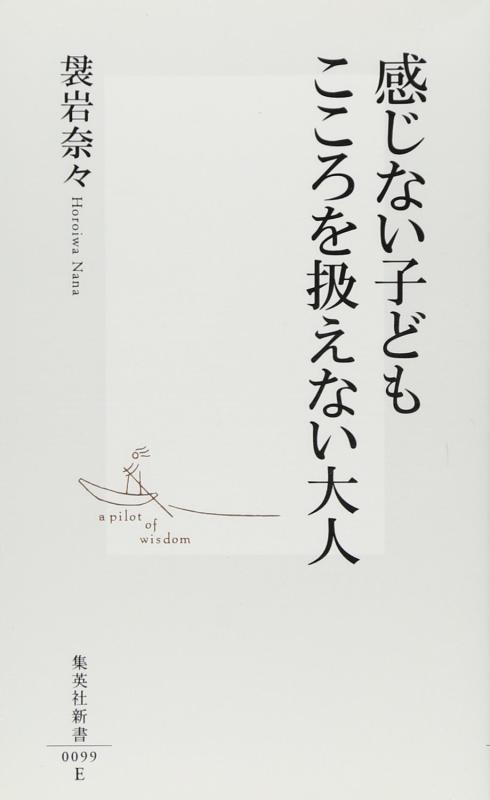 感じない子ども
こころを扱えない大人
袰岩奈々
Horoiwa Nana
a pilot
of
wisdom
集英社新書
0099
E